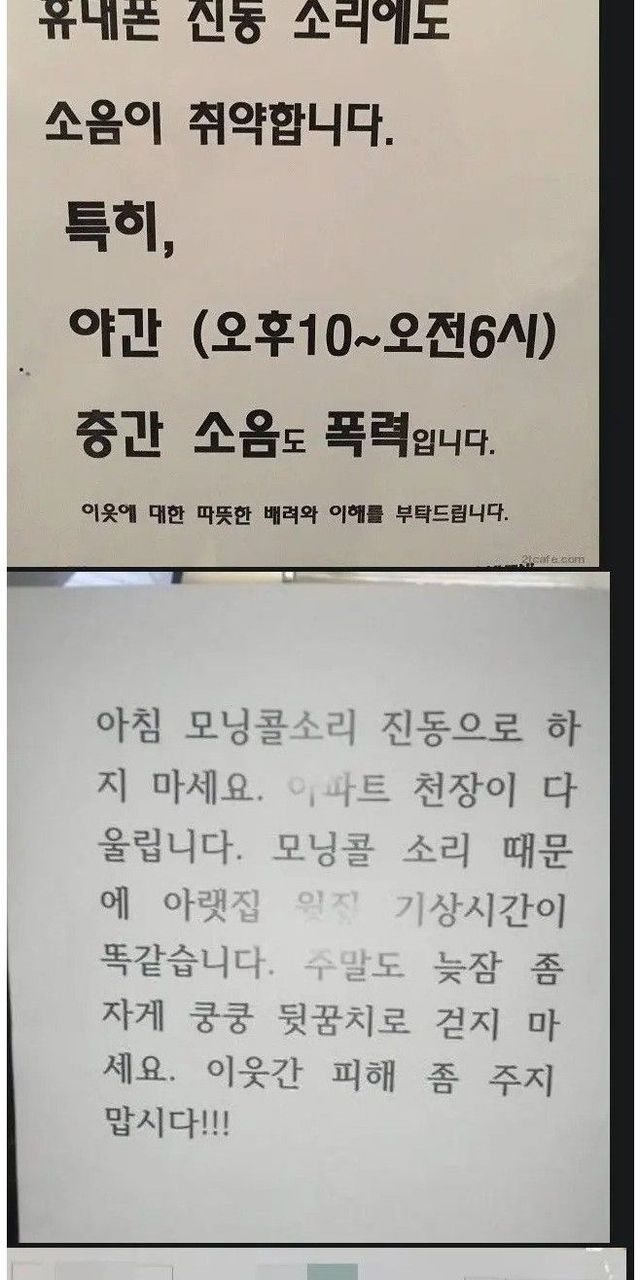 휴대폰 진동 소리에도
소음이 취약합니다.
특히,
야간 (오후10~오전6시)
층간 소음도 폭력입니다.
이웃에 대한 따뜻한 배려와 이해를 부탁드립니다.
2tcafe.com
아침 모닝콜소리 진동으로 하
지 마세요. 아파트 천장이 다
울립니다. 모닝콜 소리 때문
에 아랫집 윗집 기상시간이
똑같습니다. 주말도 늦잠 좀
자게 쿵쿵 뒷꿈치로 걷지 마
세요. 이웃간 피해 좀 주지
맙시다!!!